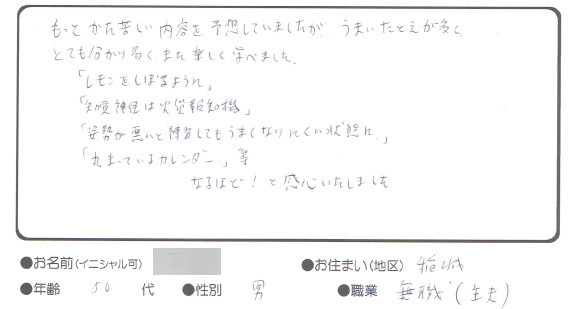 もっとかた苦しい内容を予想していましたが、うまいたとえが多く、
とても分かり易く、また楽しく学べました。
「レモンをしぼるように」
「知覚神経は火災報知機」
「姿勢が悪いと練習してもうまくなりにくい状態に。」
「丸まっているカレンダー」等
なるほど!と感心いたしました
●お名前(イニシャル可)
●お住まい(地区) 稲城
●年齢 50 代 ●性別 男 ●職業 無職(主夫)